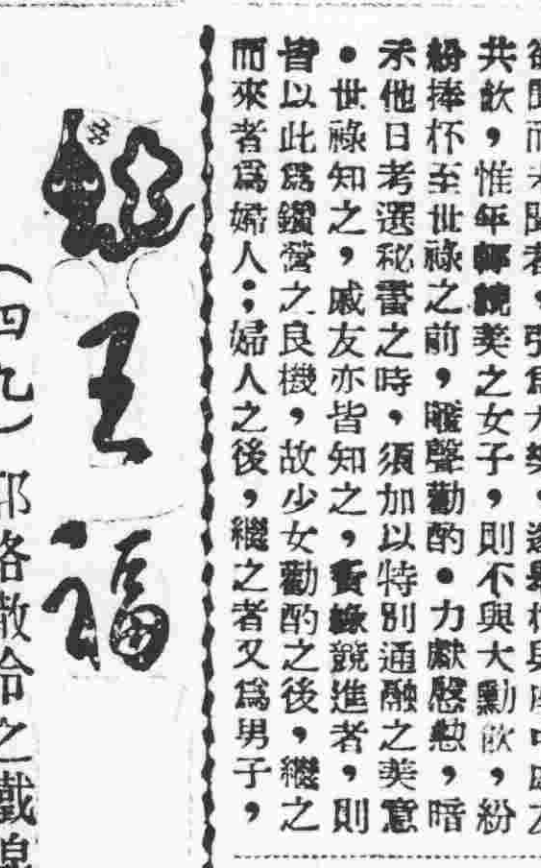 共飲，惟年輕貌美之女子，則不與大勳飲，紛
紛捧杯至世祿之前，聲勸酌●力獻慇懃，暗
示他日考選秘書之時，須加以特別通融之美意
●世祿知之，戚友亦皆知之，夤緣競進者，則
皆以此爲鑽營之良機，故少女勸酌之後，繼之
而來者爲婦人；婦人之後，繼之者又爲男子，
蛇王福
（四九）耶路撒冷之戲